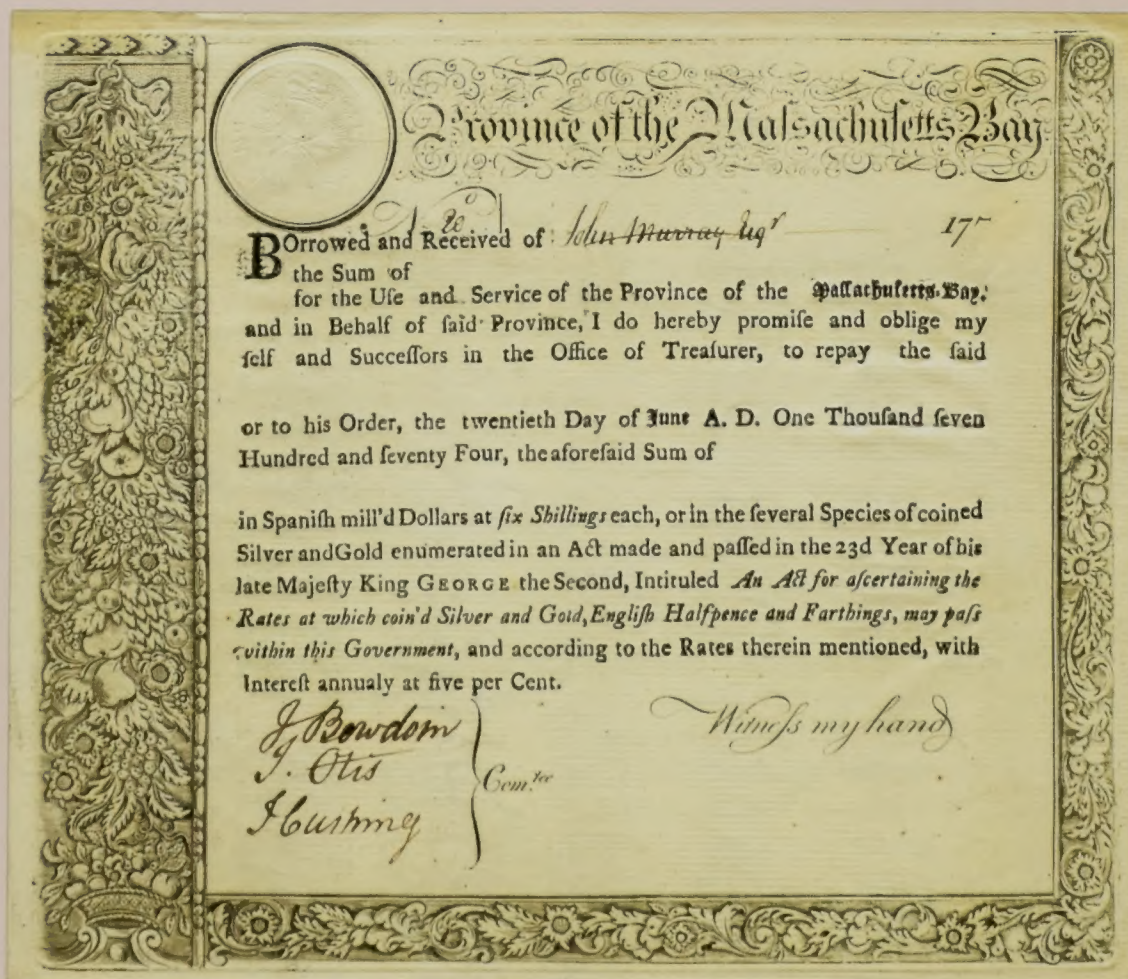 Province of the Maſsachuſetts Bay
No
BOrrowed and Received of John Murray Esqr 17
the Sum of
for the Uſe and Service of the Province of the Maſſachuſetts-Bay,
and in Behalf of ſaid Province, I do hereby promiſe and oblige my
ſelf and Succeſſors in the Office of Treaſurer, to repay the ſaid
or to his Order, the twentieth Day of June A. D. One Thouſand ſeven
Hundred and ſeventy Four, the aforeſaid Sum of
in Spaniſh mill'd Dollars at ſix Shillings each, or in the ſeveral Species of coined
Silver and Gold enumerated in an Act made and paſſed in the 23d Year of his
late Majeſty King GEORGE the Second, Intituled An Act for aſcertaining the
Rates at which coin'd Silver and Gold, Engliſh Halfpence and Farthings, may paſs
within this Government, and according to the Rates therein mentioned, with
Intereſt annualy at five per Cent.
Witneſs my hand
J Bowdoin
J. Otis
Comtee
J Cushing